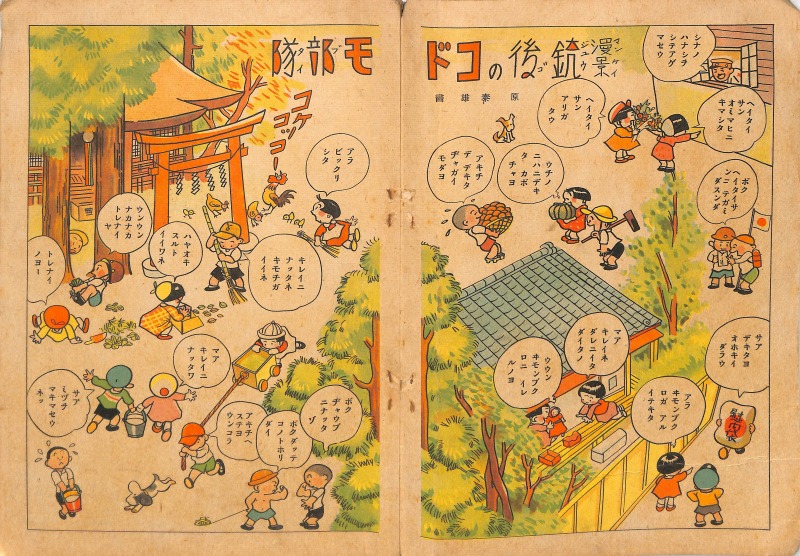 漫景
マンケイ
銃後のコドモ部隊
ジュウゴ
ブタイ
原泰雄畫
シナノ
ハナシヲ
シテアゲ
マセウ
ヘイタイ
サン
オミマヒニ
キマシタ
ヘイタイ
サン
アリガ
タウ
ボク
ヘイタイサ
ンニ テガミ
ダスンダ
ウチノ
ニハニデキ
タ カボ
チャヨ
アキチ
デ デキタ
ヂャガイ
モダヨ
サア
デキタヨ
オホキイ
ダラウ
慰問袋
アラ
ヰモンブク
ロガ アル
イテキタ
マア
キレイネ
ダレニイタ
ダイタノ
ウウン
ヰモンブク
ロニ イレ
ルノヨ
コケコッコーッ
アラ
ビックリ
シタ
キレイニ
ナッタネ
キモチガ
イイネ
ハヤオキ
スルト
イイワネ
ウンウン
ナカナカ
トレナイ
ヤ
トレナイ
ノヨー
マア
キレイニ
ナッタワ
サア
ミヅヲ
マキマセウ
ネッ
ボク
ヂャウブ
ニナッタ
ゾ
ボクダッテ
コノトホリ
ダイ
アキチヘ
ステヨ
ウンコラ